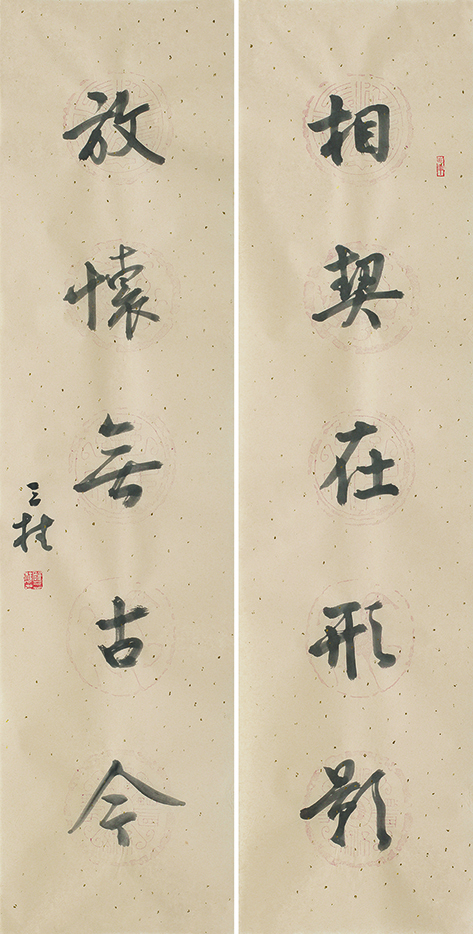 相契在形影
放懷無古今